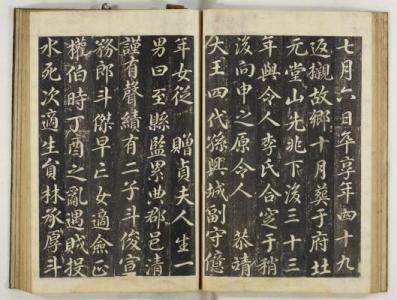 七月六日卒享年四十九
返櫬故鄉十月葬于府北
元堂山先兆下後三十三
年與令人李氏合窆于稍
後向申之原令人 恭靖
大王四代孫興城副守億
年女從 贈貞夫人生一
男曰至縣監累典郡邑清
謹有聲績有二子斗俊宣
務郎斗傑早亡女適僉正
權伯時丁酉之亂遇賊投
水死次適生員林承厚斗